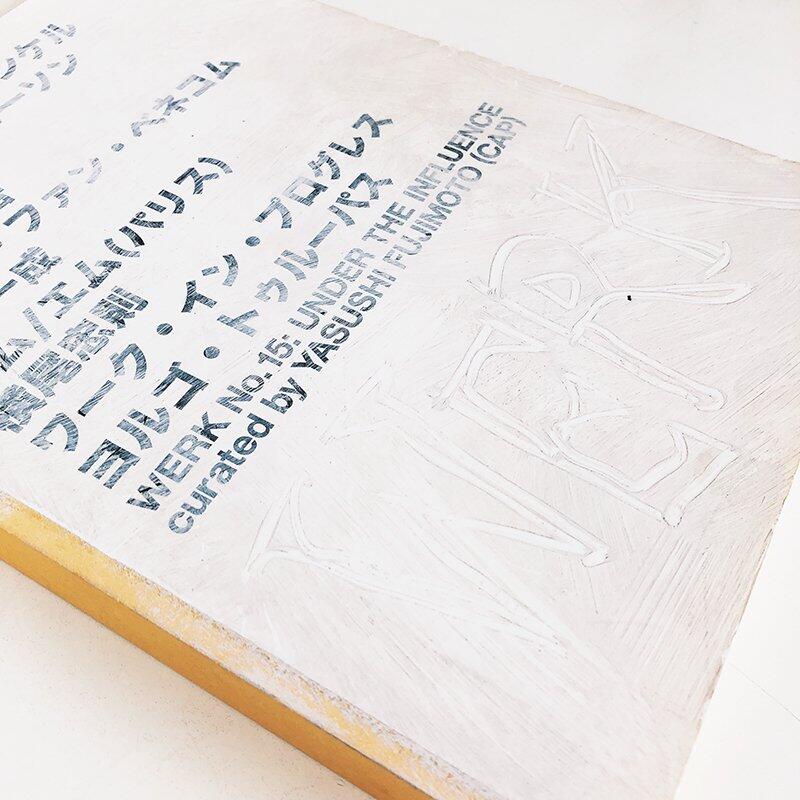 ンゲル
ーソン
ファン・ベネコム
ム/エム(パリス)
横尾忠則
ワーク・イン・プログレス
ヨルゴ・トゥルーパス
WERK No.15: UNDER THE INFLUENCE
curated by YASUSHI FUJIMOTO (CAP)
WERK